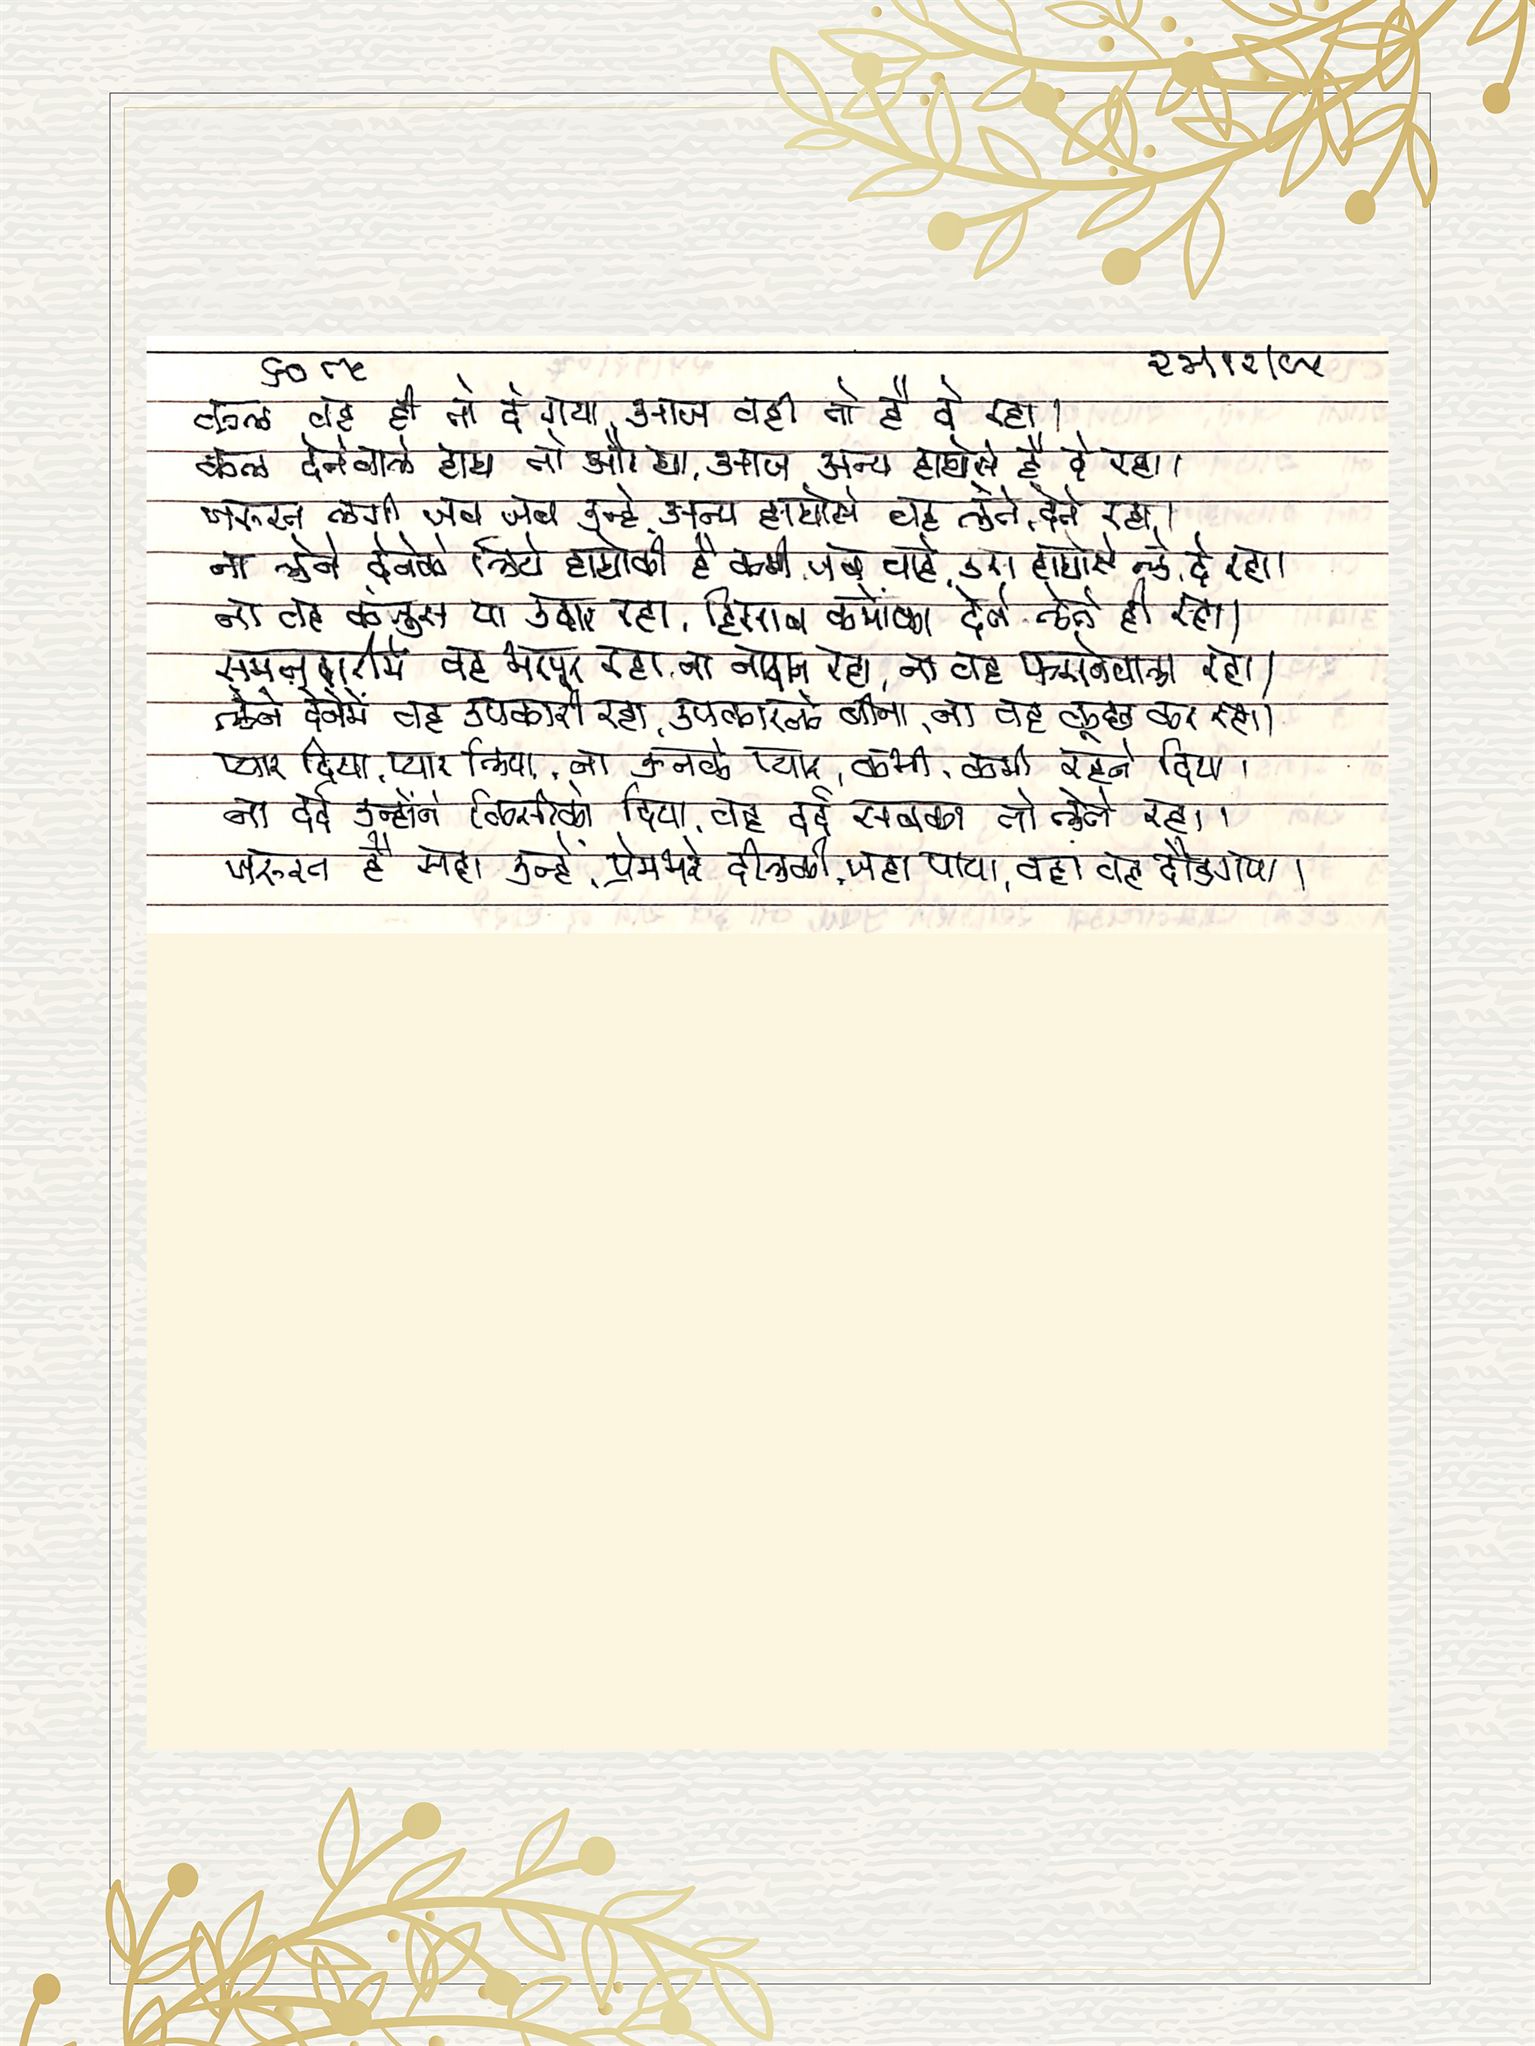 कल वह ही तो दे गया, आज वही तो है दे रहा।
कल देनेवाले हाथ तो और था, आज अन्य हाथोंसे है दे रहा।
जरूरत लगी जब जब उन्हें, अन्य हाथोंसे वह लेते, देते रहा,।
ना लेने देनेके लिये हाथोकी है कमी, जब चाहे, उस हाथोंसे ले, दे रहा।
ना वह कंजुस या उदार रहा, हिसाब कर्मोका देते लेते ही रहा।
समजदारीमें वह भरपूर रहा, ना नादान रहा, ना वह फसानेवाला रहा।
लेने देनेमें वह उपकारी रहा, उपकारके बीना, ना वह कूछ कर रहा।
प्यार दिया, प्यार लिया, ना उनके प्यार, कभी, कमी रहने दिया।
ना दर्द उन्होंने किसीको दिया, वह दर्द सबका तो लेते रहा।
जरूरत है सदा उन्हें, प्रेमभरे दीलकी, जहा पाया, वहां वह दौड गया।